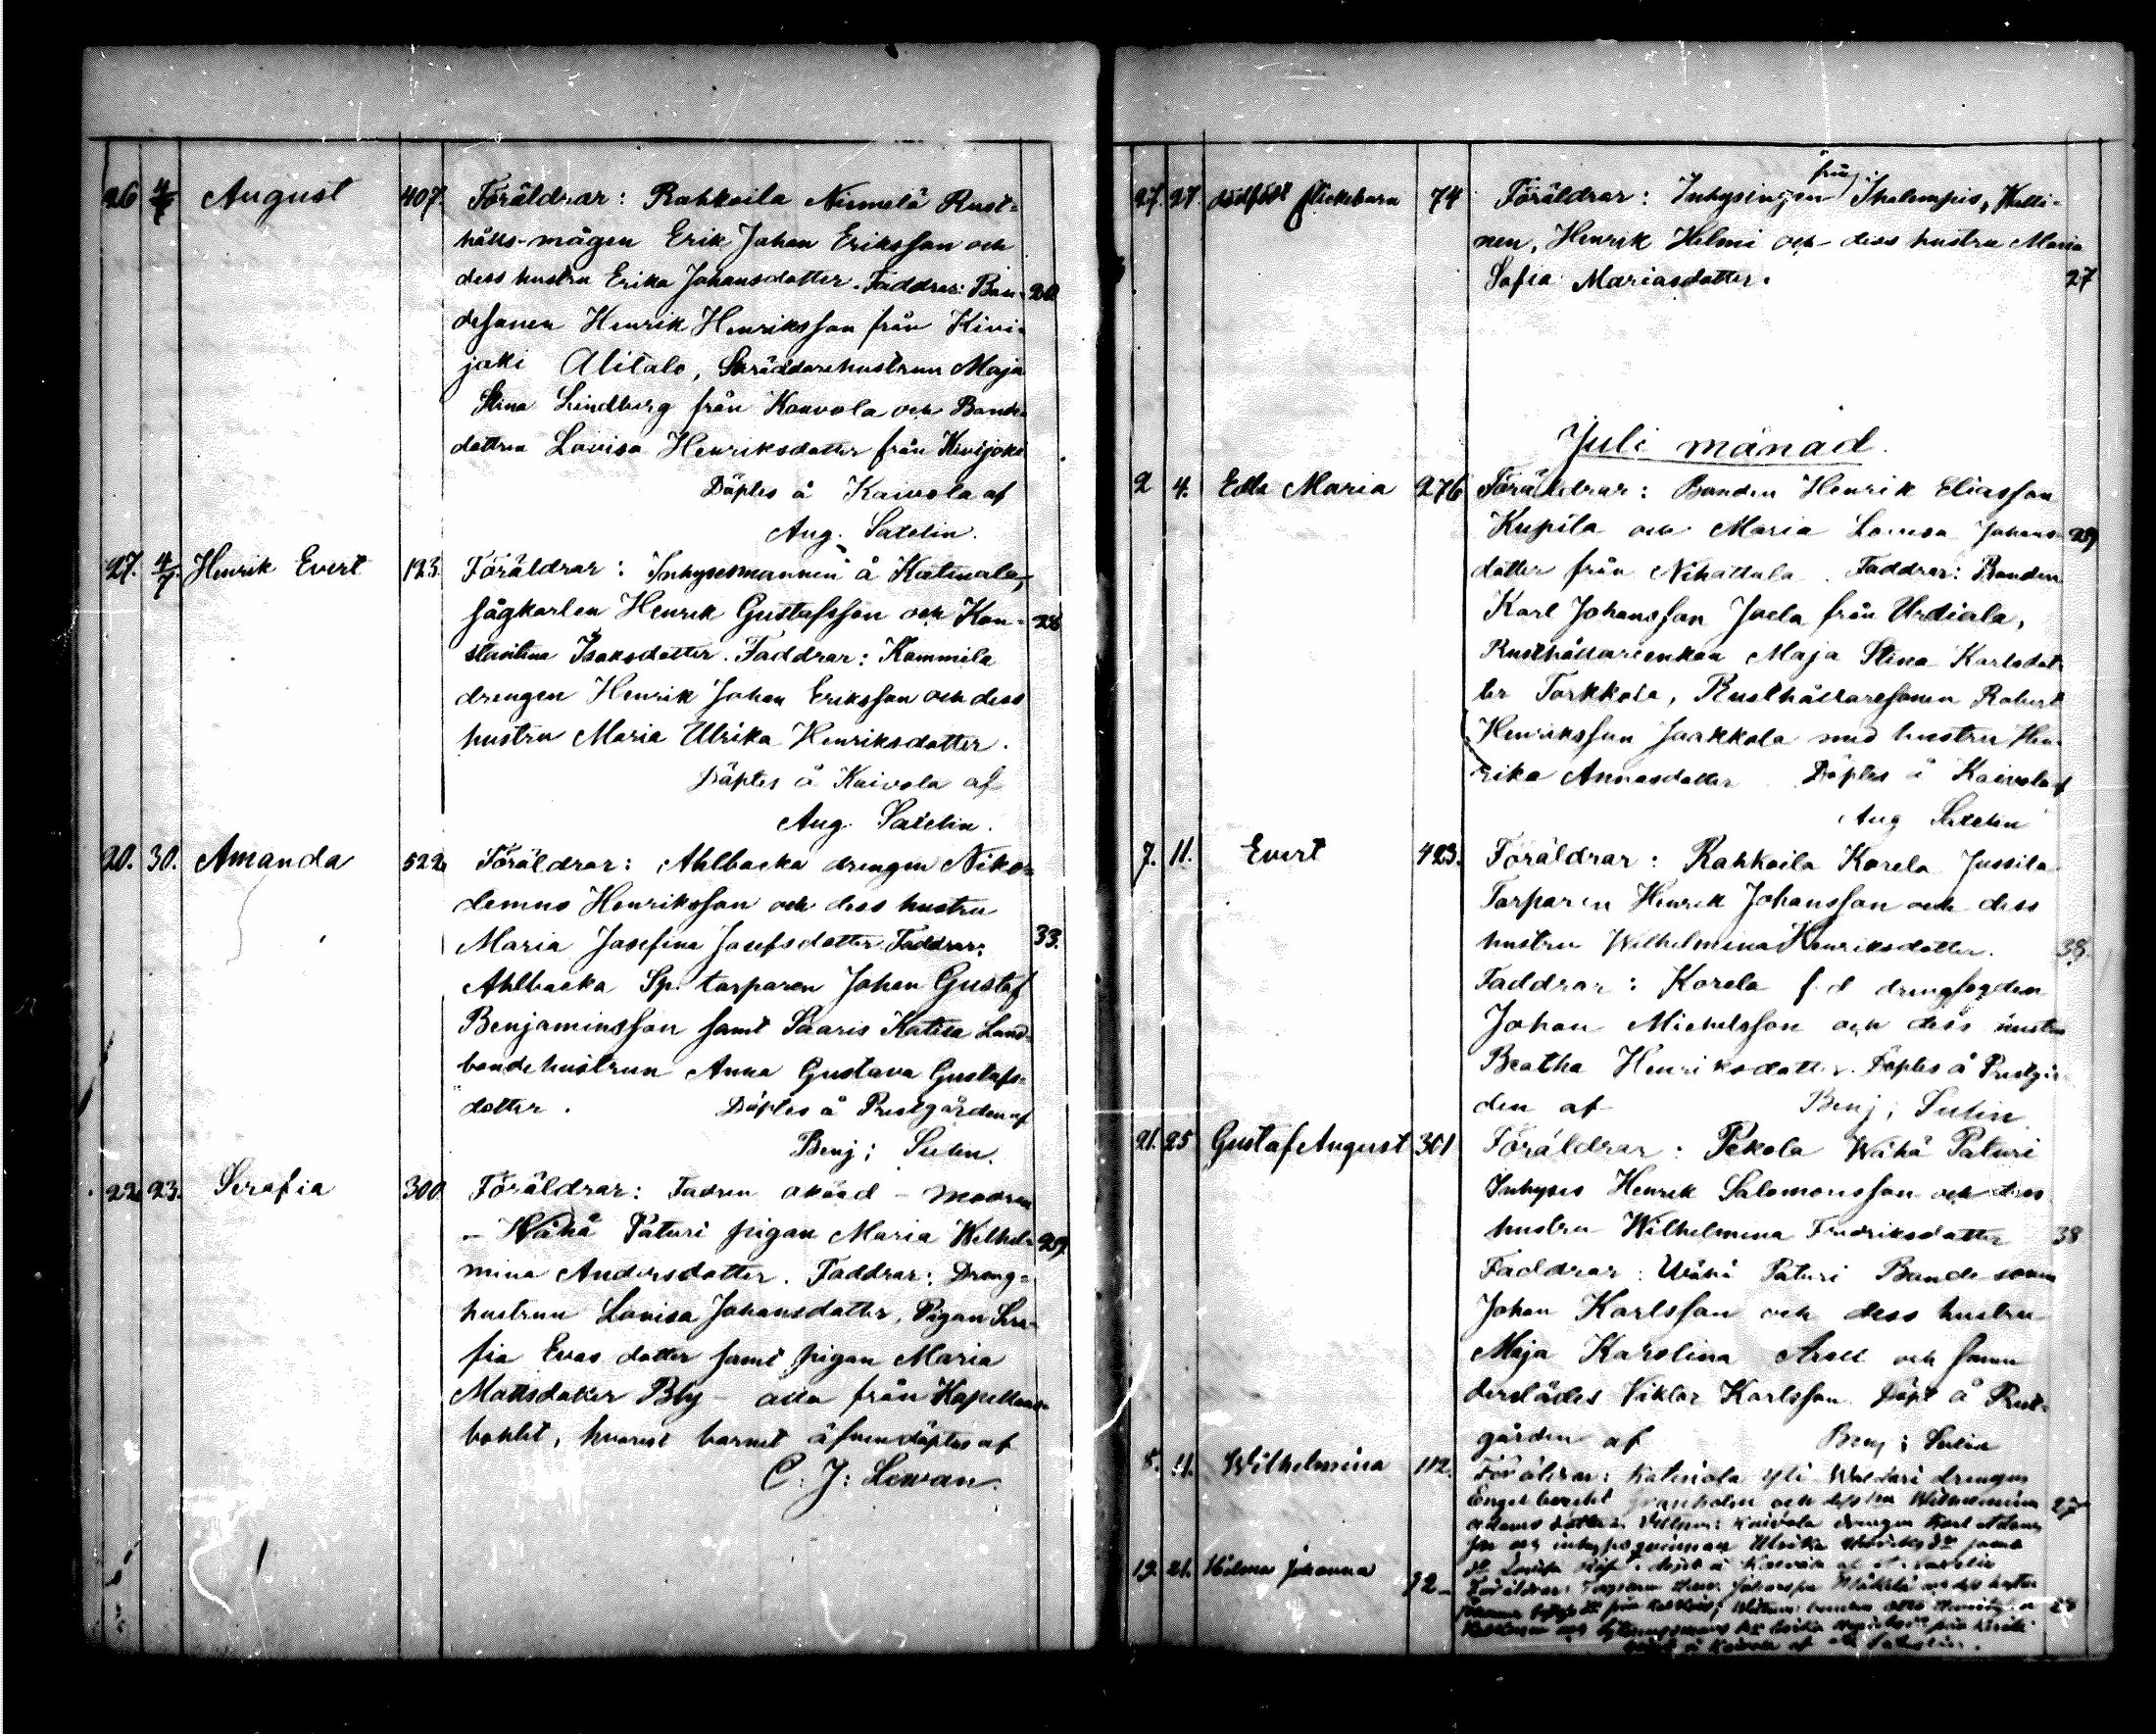 26 4/7 August 407. Föräldrar: Rahkoila Niemelä Rust-
hålls-mågen Erik Johan Eriksson och
dess hustru Erika Johansdotter. Faddrar: Bon- 20
desonen Henrik Henriksson från Kivi-
joki Alitalo, Skräddarehustrun Maja
Stina Lindberg från Kouvola och Bonde-
dottren Lovisa Henriksdotter från Kivijoki
Döptes å Kaivola af
Aug. Saxelin.
27. 4/7. Henrik Evert 123. Föräldrar: Inhysesmannen å Katinala,
sågkarlen Henrik Gustafsson och Kon- 26
stantina Isaksdotter. Faddrar: Kommila
drengen Henrik Johan Eriksson och dess
hustru Maria Ulrika Henriksdotter.
Döptes å Kaivola af
Aug. Saxelin.
20. 30. Amanda 522. Föräldrar: Ahlbacka drengen Niko-
demus Henriksson och dess hustru
Maria Josefina Josefsdotter. Faddrar: 33.
Ahlbacka Sp. torparen Johan Gustaf
Benjaminsson samt Saaris Katisa Land-
bondehustrun Anna Gustava Gustafs-
dotter. Döptes å Prestgården af
Benj: Sulin.
22. 23. Serafia 300. Föräldrar: Fadren okänd – Modren
– Wähä Paturi pigan Maria Wilhel- 29
mina Andersdotter. Faddrar: Dreng-
hustrun Lovisa Johansdotter, Pigan Sera-
fia Evas dotter samt pigan Maria
Mattsdotter Bly – alla från Kapellans-
bohlet, hvarest barnet äfven döptes af
C: J: Lewan.
27. 27. dödfödt flickebarn 74 Föräldrar: Inhysingen från
nen, Henrik Helmi och dess hustru Maria
Sofia Mariasdotter. 27
Juli månad.
2 4. Edla Maria 276 Föräldrar: Bonden Henrik Eliasson
Kupila och Maria Lovisa Johans- 29
dotter från Nihattula. Faddrar: Bonden
Karl Johansson Juela från Urdiala,
Rusthållareenkan Maja Stina Karlsdot-
ter Torkkola, Rusthållaresonen Robert
Henriksson Jaakkola med hustru Hen-
rika Annasdotter Döptes å Kaivola af
Aug Saxelin
7. 11. Evert 423. Föräldrar: Rahkoila Korela Jussila
Torparen Henrik Johansson och dess
hustru Wilhelmina Henriksdotter. 38.
Faddrar: Korela f. d. drengfogden
Johan Michelsson och dess hustru
Beatha Henriksdotter. Döptes å Prestgår-
den af Benj: Sulin
21. 25 Gustaf August 301 Föräldrar: Pekola Wähä Paturi
Inhyses Henrik Salomonsson och dess
hustru Wilhelmina Fredriksdotter 38
Faddrar: Wähä Paturi Bondesonen
Johan Karlsson och dess hustru
Maja Karolina och sonen
derstädes Viktor Karlsson. Döpt å Prest-
gården af Benj: Sulin
8. 11. Wilhelmina 112. Föräldrar: Katinala Yli Wuolari drengen
Engelbrecht Granholm och dess hu Wilhelmina 27
Adamsdotter. Vittnen: Kaivola drengen Karl Adams
son och inhysesqvinnan Ulrika
19. 21. Hilma Johanna 12 Föräldrar: Torparen Henr. Johansson
28